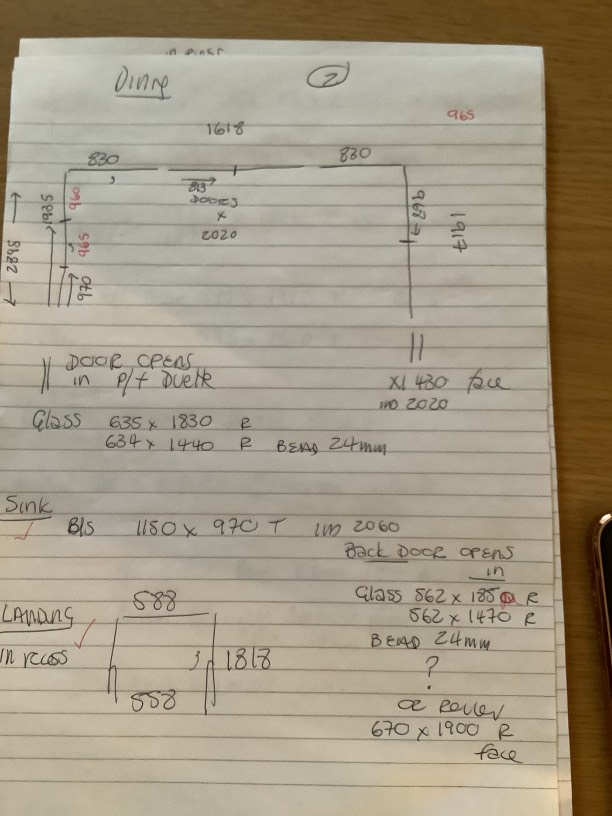 Dining 2
965
1618
830 830
813
DOORS
x
2020
960
965
970
1985
2882
968
1917
DOOR OPENS
in P/f Duette
x1 430 face
IND 2020
Glass 635 x 1830 R
634 x 1440 R BEAD 24mm
Sink
B/S 1180 x 970 T IND 2060
Back DOOR OPENS
in
Glass 562 x 1850 R
562 x 1470 R
BEAD 24mm
?
OR Roller
670 x 1900 R
face
LANDING
IN recess
588
1818
588